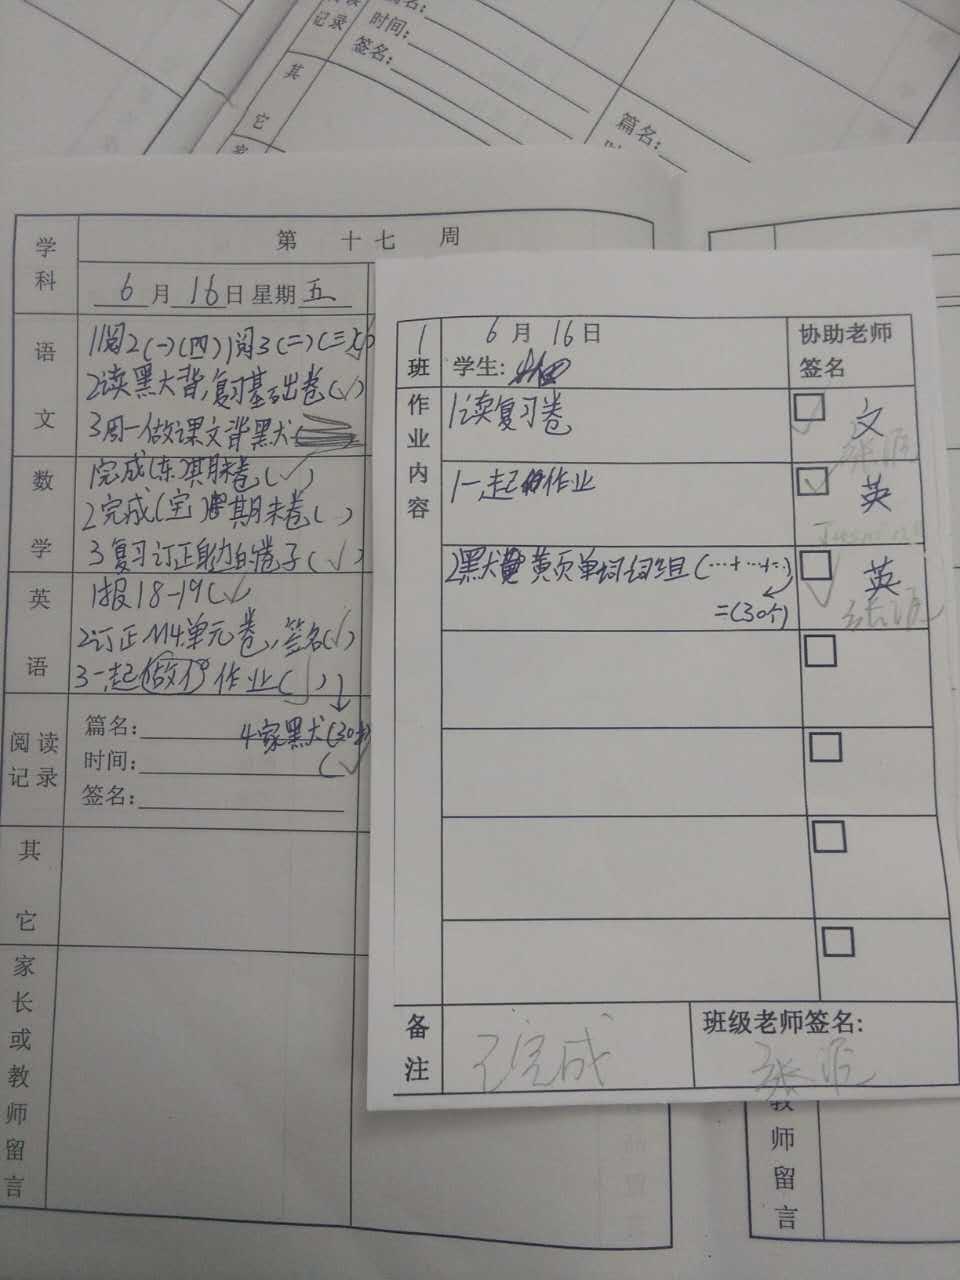 记录
时间:
签名:
其
它
篇名:
学科
第 十七 周
6月16日 星期五
语文
1阅2(一)(四)阅3(二)(三)(√)
2读黑大背,复习基础卷(√)
3周一做课文背黑犬
数学
1完成(东)期末卷(√)
2完成(宝)期末卷( )
3复习订正卷子(√)
英语
1报18-19(√)
2订正M4单元卷,签名(√)
3一起作业( )
4家黑犬(30个)
(√)
阅读记录
篇名:
时间:
签名:
其
它
家长或教师留言
1班
6月16日
学生:
协助老师签名
作业内容
1读复习卷
文
1一起作业
英
2黑犬黄页单词词组(…+…+…)
=(30个)
英
备注
已完成
班级老师签名:
教师留言